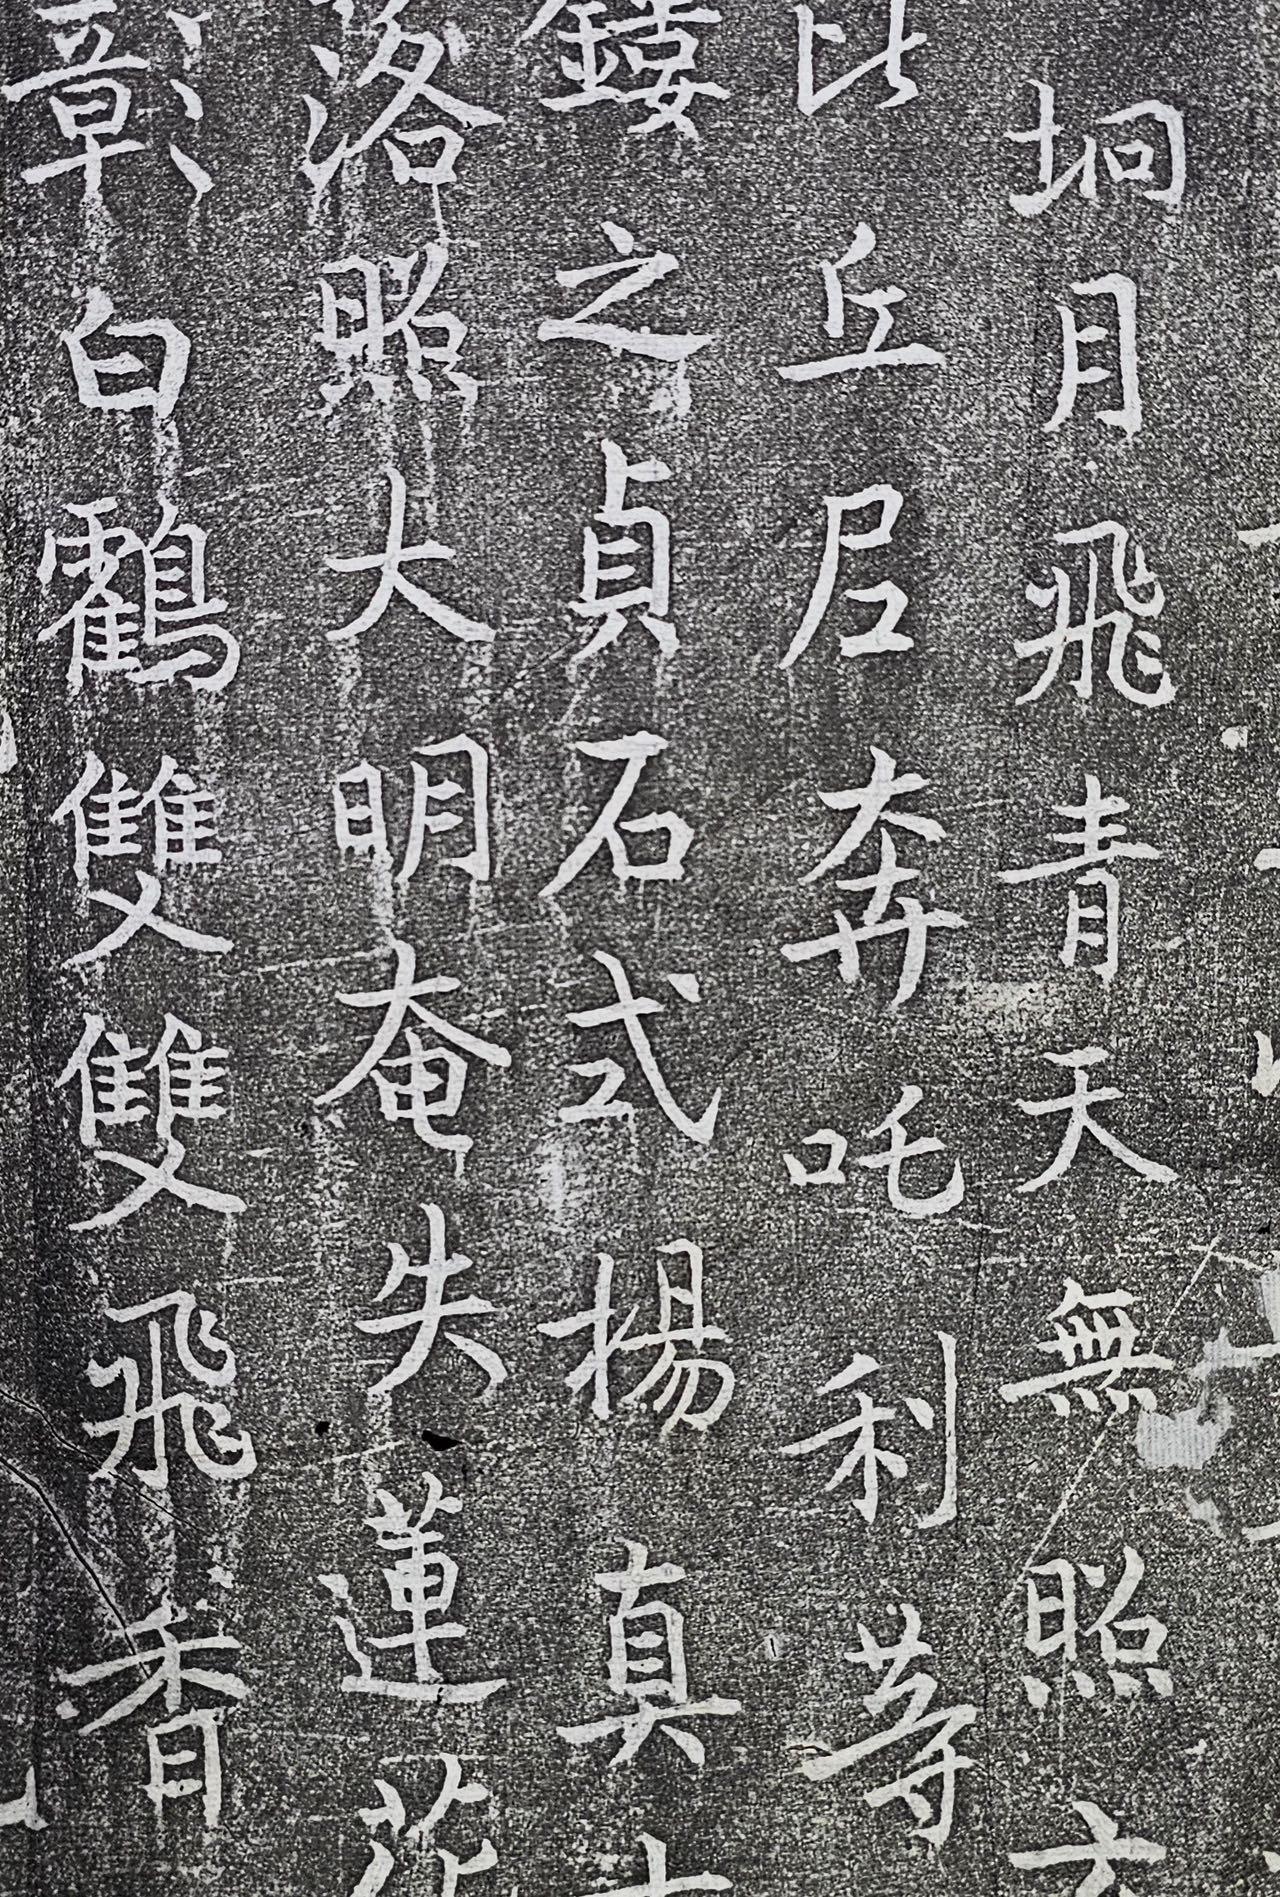 坰月飛青天無照
比丘居奔吒利等
鏤之貞石式揚真
落照大明奄失蓮花
彰白鶴雙雙飛香